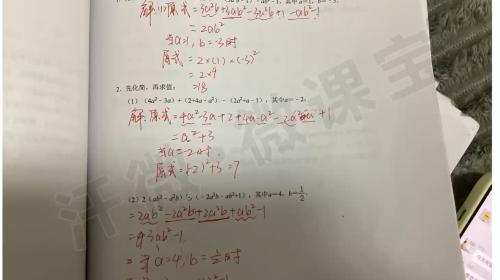 解:(1)原式=3a²b+3ab²-3a²b+1-ab²-1
=2ab²
当a=1,b=-3时
原式=2×(1)×(-3)²
=2×9
=18
2.先化简,再求值:
(1)(4a²-3a)+(2+4a-a²)-(2a²+a-1),其中a=-2;
解:原式=4a²-3a+2+4a-a²-2a²-a+1
=a²+3
当a=-2时
原式=(-2)²+3=7
(2)2(ab²-a²b)-(-2a²b-ab²+1),其中a=4,b=1/2.
=2ab²-2a²b+2a²b+ab²-1
=3ab²-1
当a=4,b=1/2时
微课宝